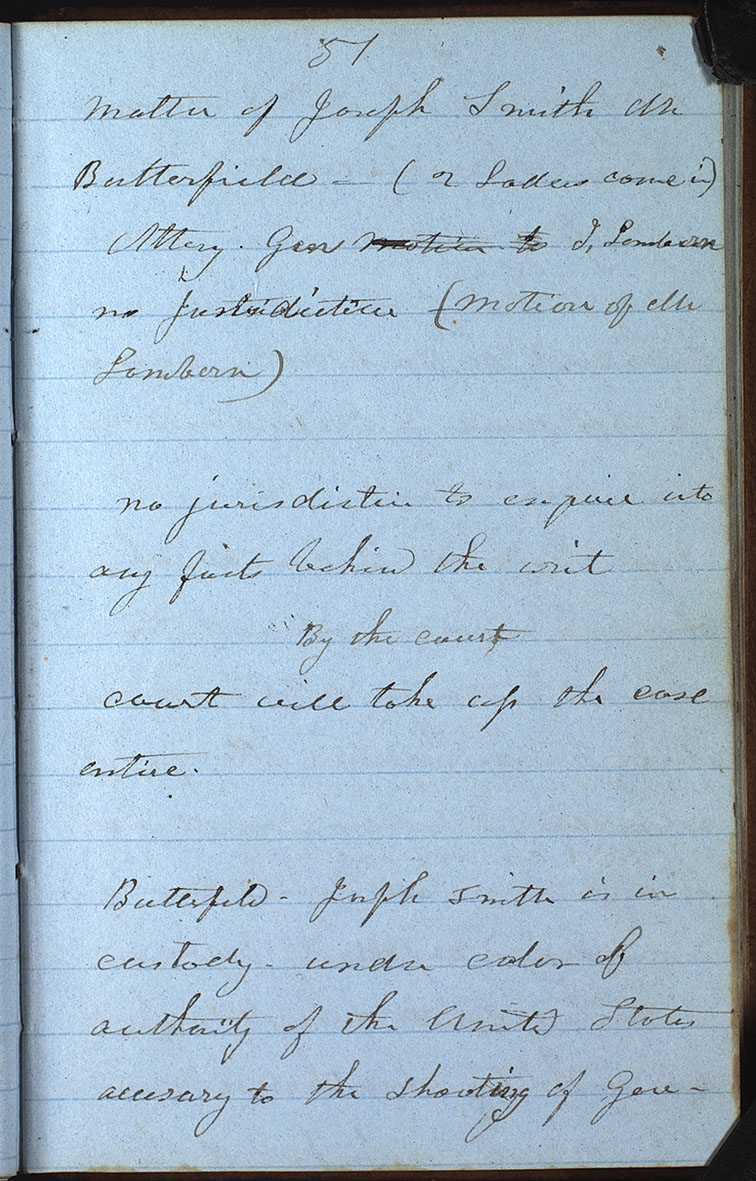 51
matter of Joseph Smith Mr
Butterfield – (2 Ladies come in)
Atteny. Gen motion to J, Lamborn
no jurisdictien (motion of Mr
Lamborn)
no jurisdictin to enquire into
any facts behind the writ
By the court
court will take up the case
entire.
Butterfield - Joseph Smith is in
custody - under color of
authority of the United States
accesary to the shooting of Gove-